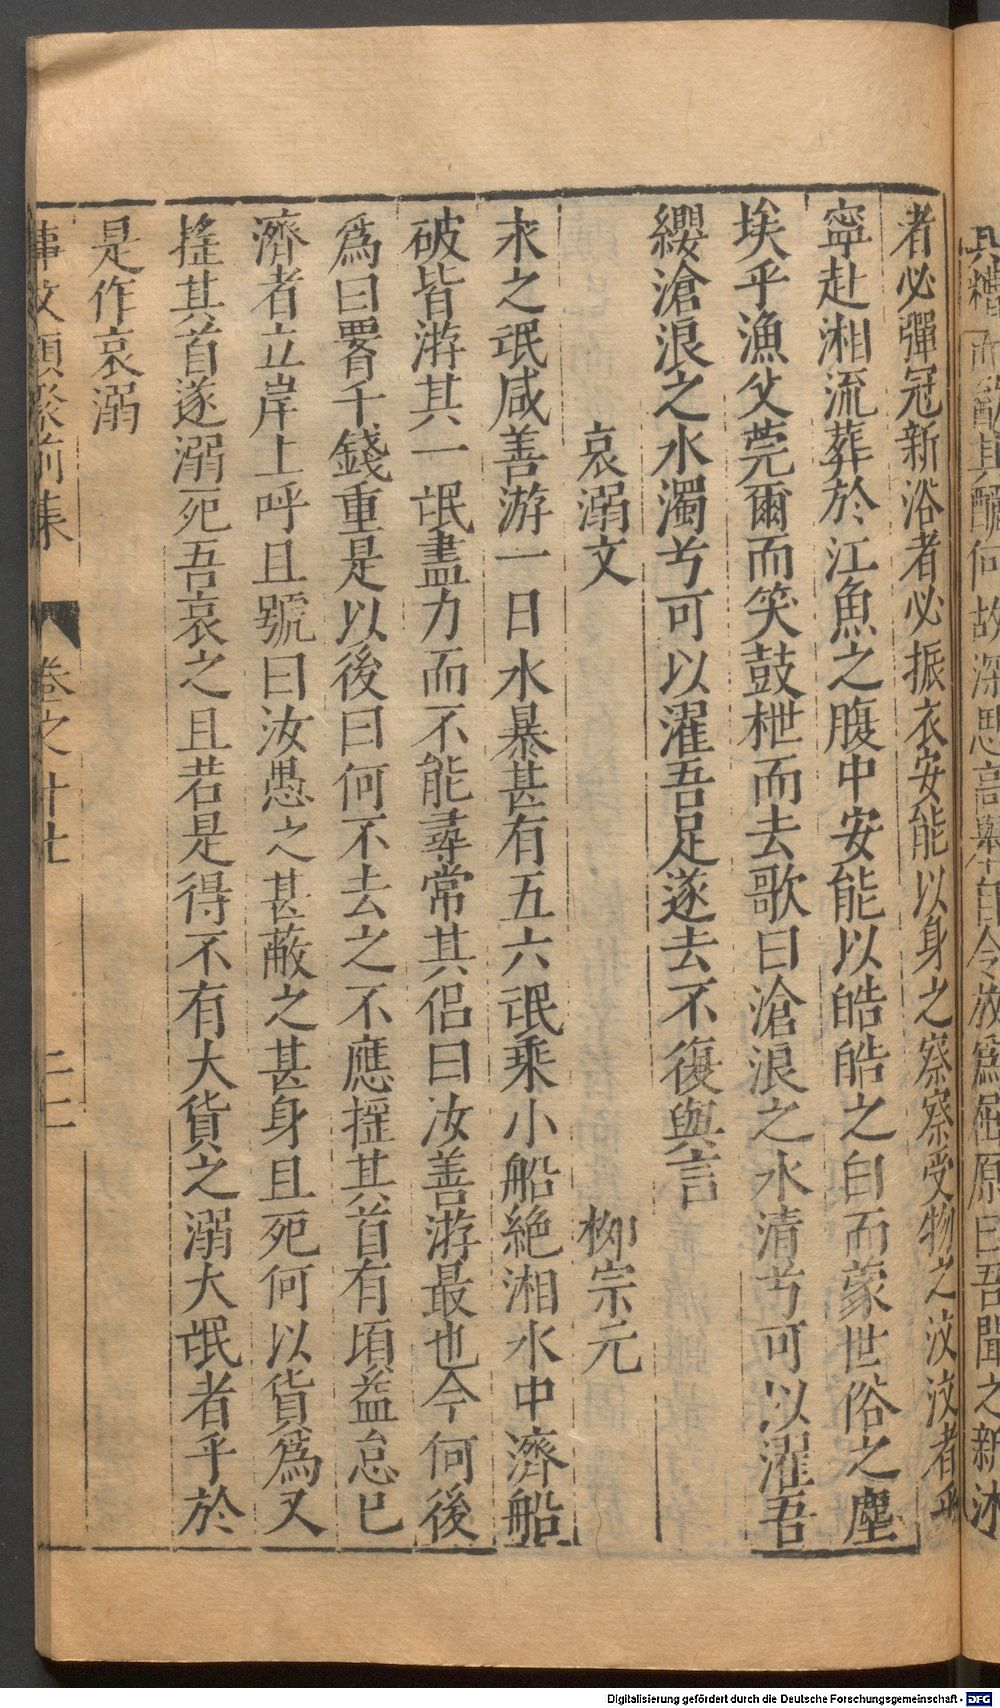 其糟而歠其醨何故深思高舉自令放爲屈原曰吾聞之新沐
者必彈冠新浴者必振衣安能以身之察察受物之汶汶者乎
寧赴湘流葬於江魚之腹中安能以皓皓之白而蒙世俗之塵
埃乎漁父莞爾而笑鼓枻而去歌曰滄浪之水清兮可以濯吾
纓滄浪之水濁兮可以濯吾足遂去不復與言
哀溺文 柳宗元
永之氓咸善游一日水暴甚有五六氓乘小船絕湘水中濟船
破皆游其一氓盡力而不能尋常其侶曰汝善游最也今何後
爲曰吾腰千錢重是以後曰何不去之不應搖其首有頃益怠已
濟者立岸上呼且號曰汝愚之甚蔽之甚身且死何以貨爲又
搖其首遂溺死吾哀之且若是得不有大貨之溺大氓者乎於
是作哀溺
事文類聚前集 卷之十七 二十二
Digitalisierung gefördert durch die Deutsche Forschungsgemeinschaft - DFG